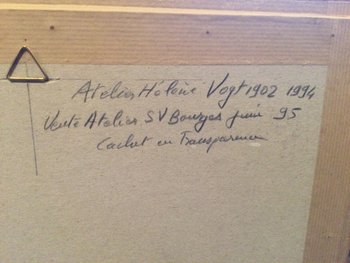 Atelier Hélène Vogt 1902 1994
Vente Atelier SV Bourges juin 95
Cachet en Transparence